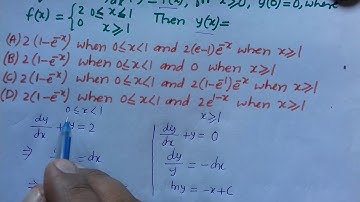 = f(x), y(0)=0, where
f(x) = { 2 0≤x≤1
0 x>1 Then y(x)=
(A) 2(1-e^-x) when 0≤x<1 and 2(e-1)e^-x when x≥1
(B) 2(1-e^-x) when 0≤x<1 and 0 when x≥1
(C) 2(1-e^-x) when 0≤x<1 and 2(1-e^-1)e^-x when x≥1
(D) 2(1-e^-x) when 0≤x<1 and 2e^1-x when x≥1
0≤x<1
dy/dx + y = 2
⇒ = dx
x≥1
dy/dx + y = 0
dy/y = -dx
lny = -x+C